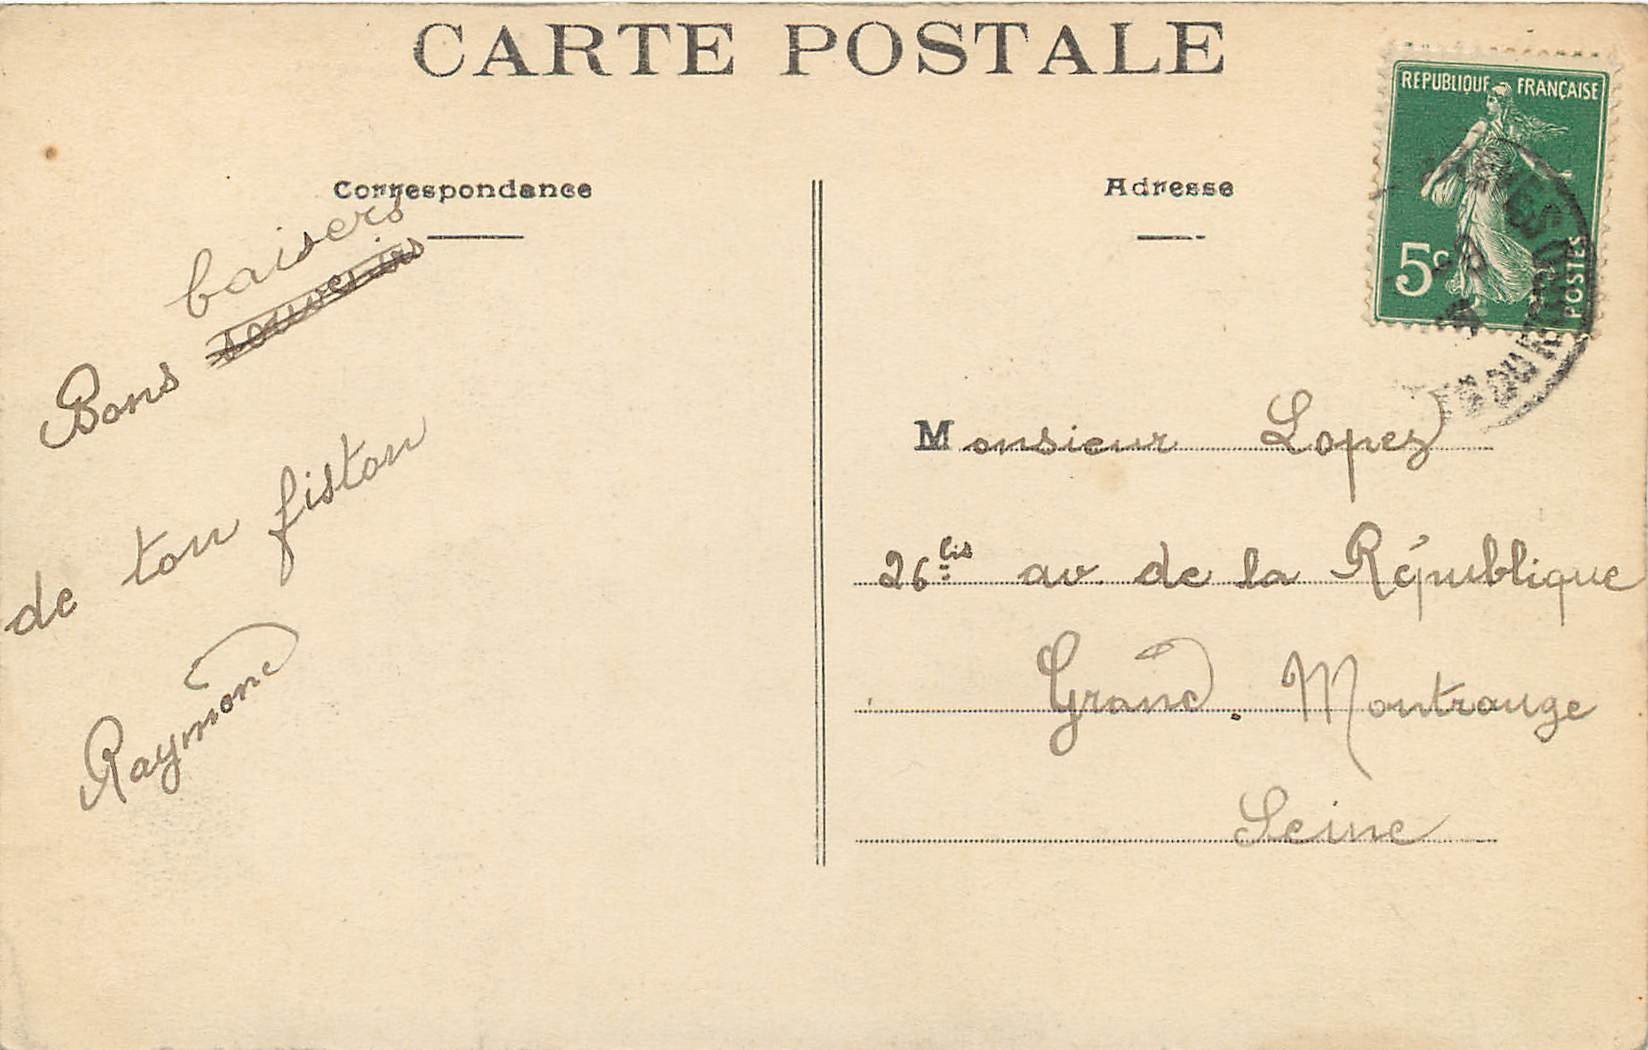 CARTE POSTALE
Correspondance
baisers
Bons souvenirs
de ton fiston
Raymond
Adresse
REPUBLIQUE FRANÇAISE
5c
POSTES
Monsieur Lopez
26 bis av. de la République
Grand. Montrouge
Seine